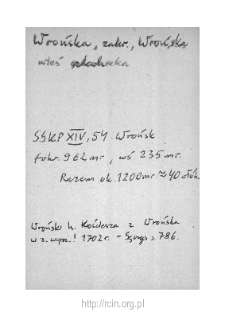 Wrońska, zakr., Wrońska
wieś szlachecka
SGKP XIV, 54 Wrońsk
folw. 962 mr, wś 235 mr.
Razem ok. 1200 mr ≈ 40 
Wroński h. Kościesza z Wrońska
w z. wysz.! 1702 r. - 786.
http://rcin.org.pl